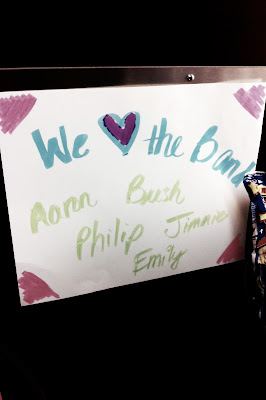 We ♥ the Band
Aaron Bush
Philip Jimmie
Emily